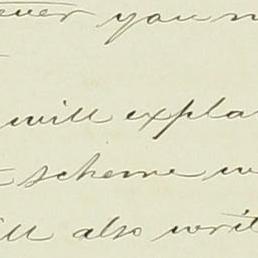 ever you m
will expla
scheme w
ill also writ